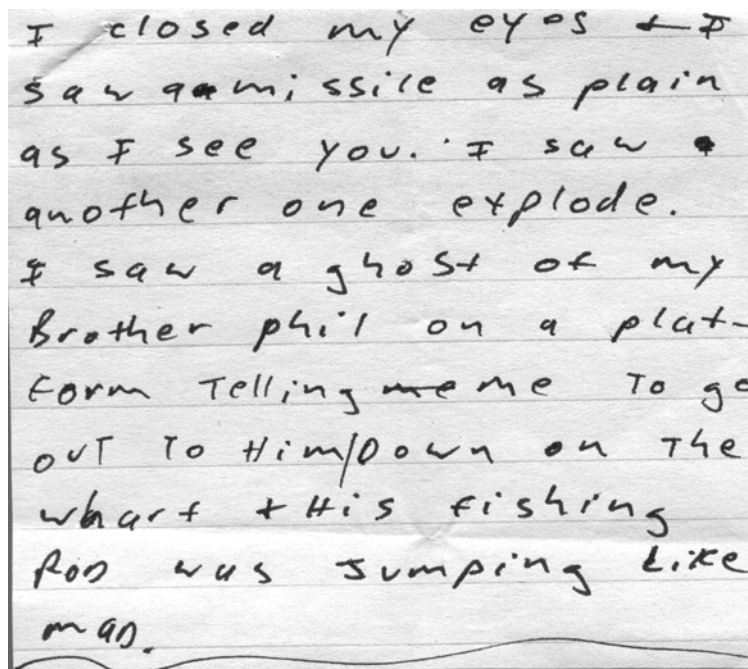 I closed my eyes + I
saw a missile as plain
as I see you. I saw
another one explode.
I saw a ghost of my
Brother phil on a plat-
form Telling me me To go
out To Him/Down on The
wharf + His fishing
Rod was Jumping Like
mad.